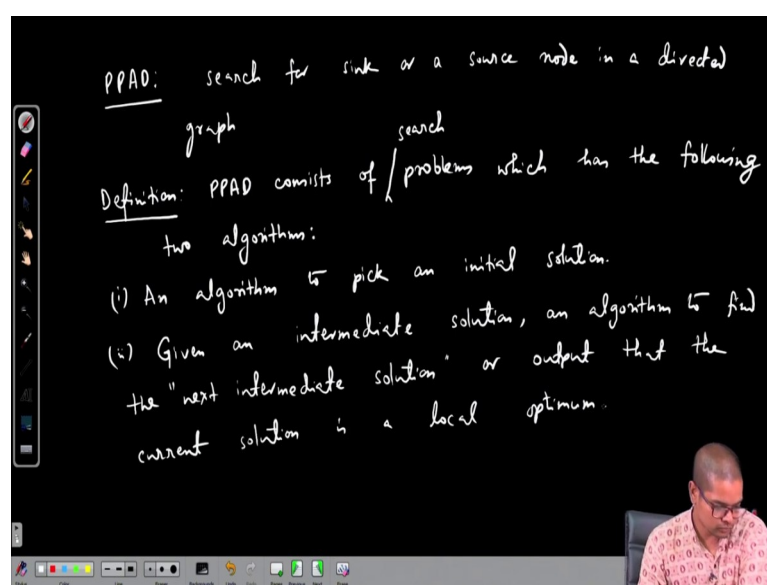 PPAD: search for sink or a source node in a directed
graph
search
Definition: PPAD consists of / problems which has the following
two algorithms:
(i) An algorithm to pick an initial solution.
(ii) Given an intermediate solution, an algorithm to find
the "next intermediate solution" or output that the
current solution is a local optimum.